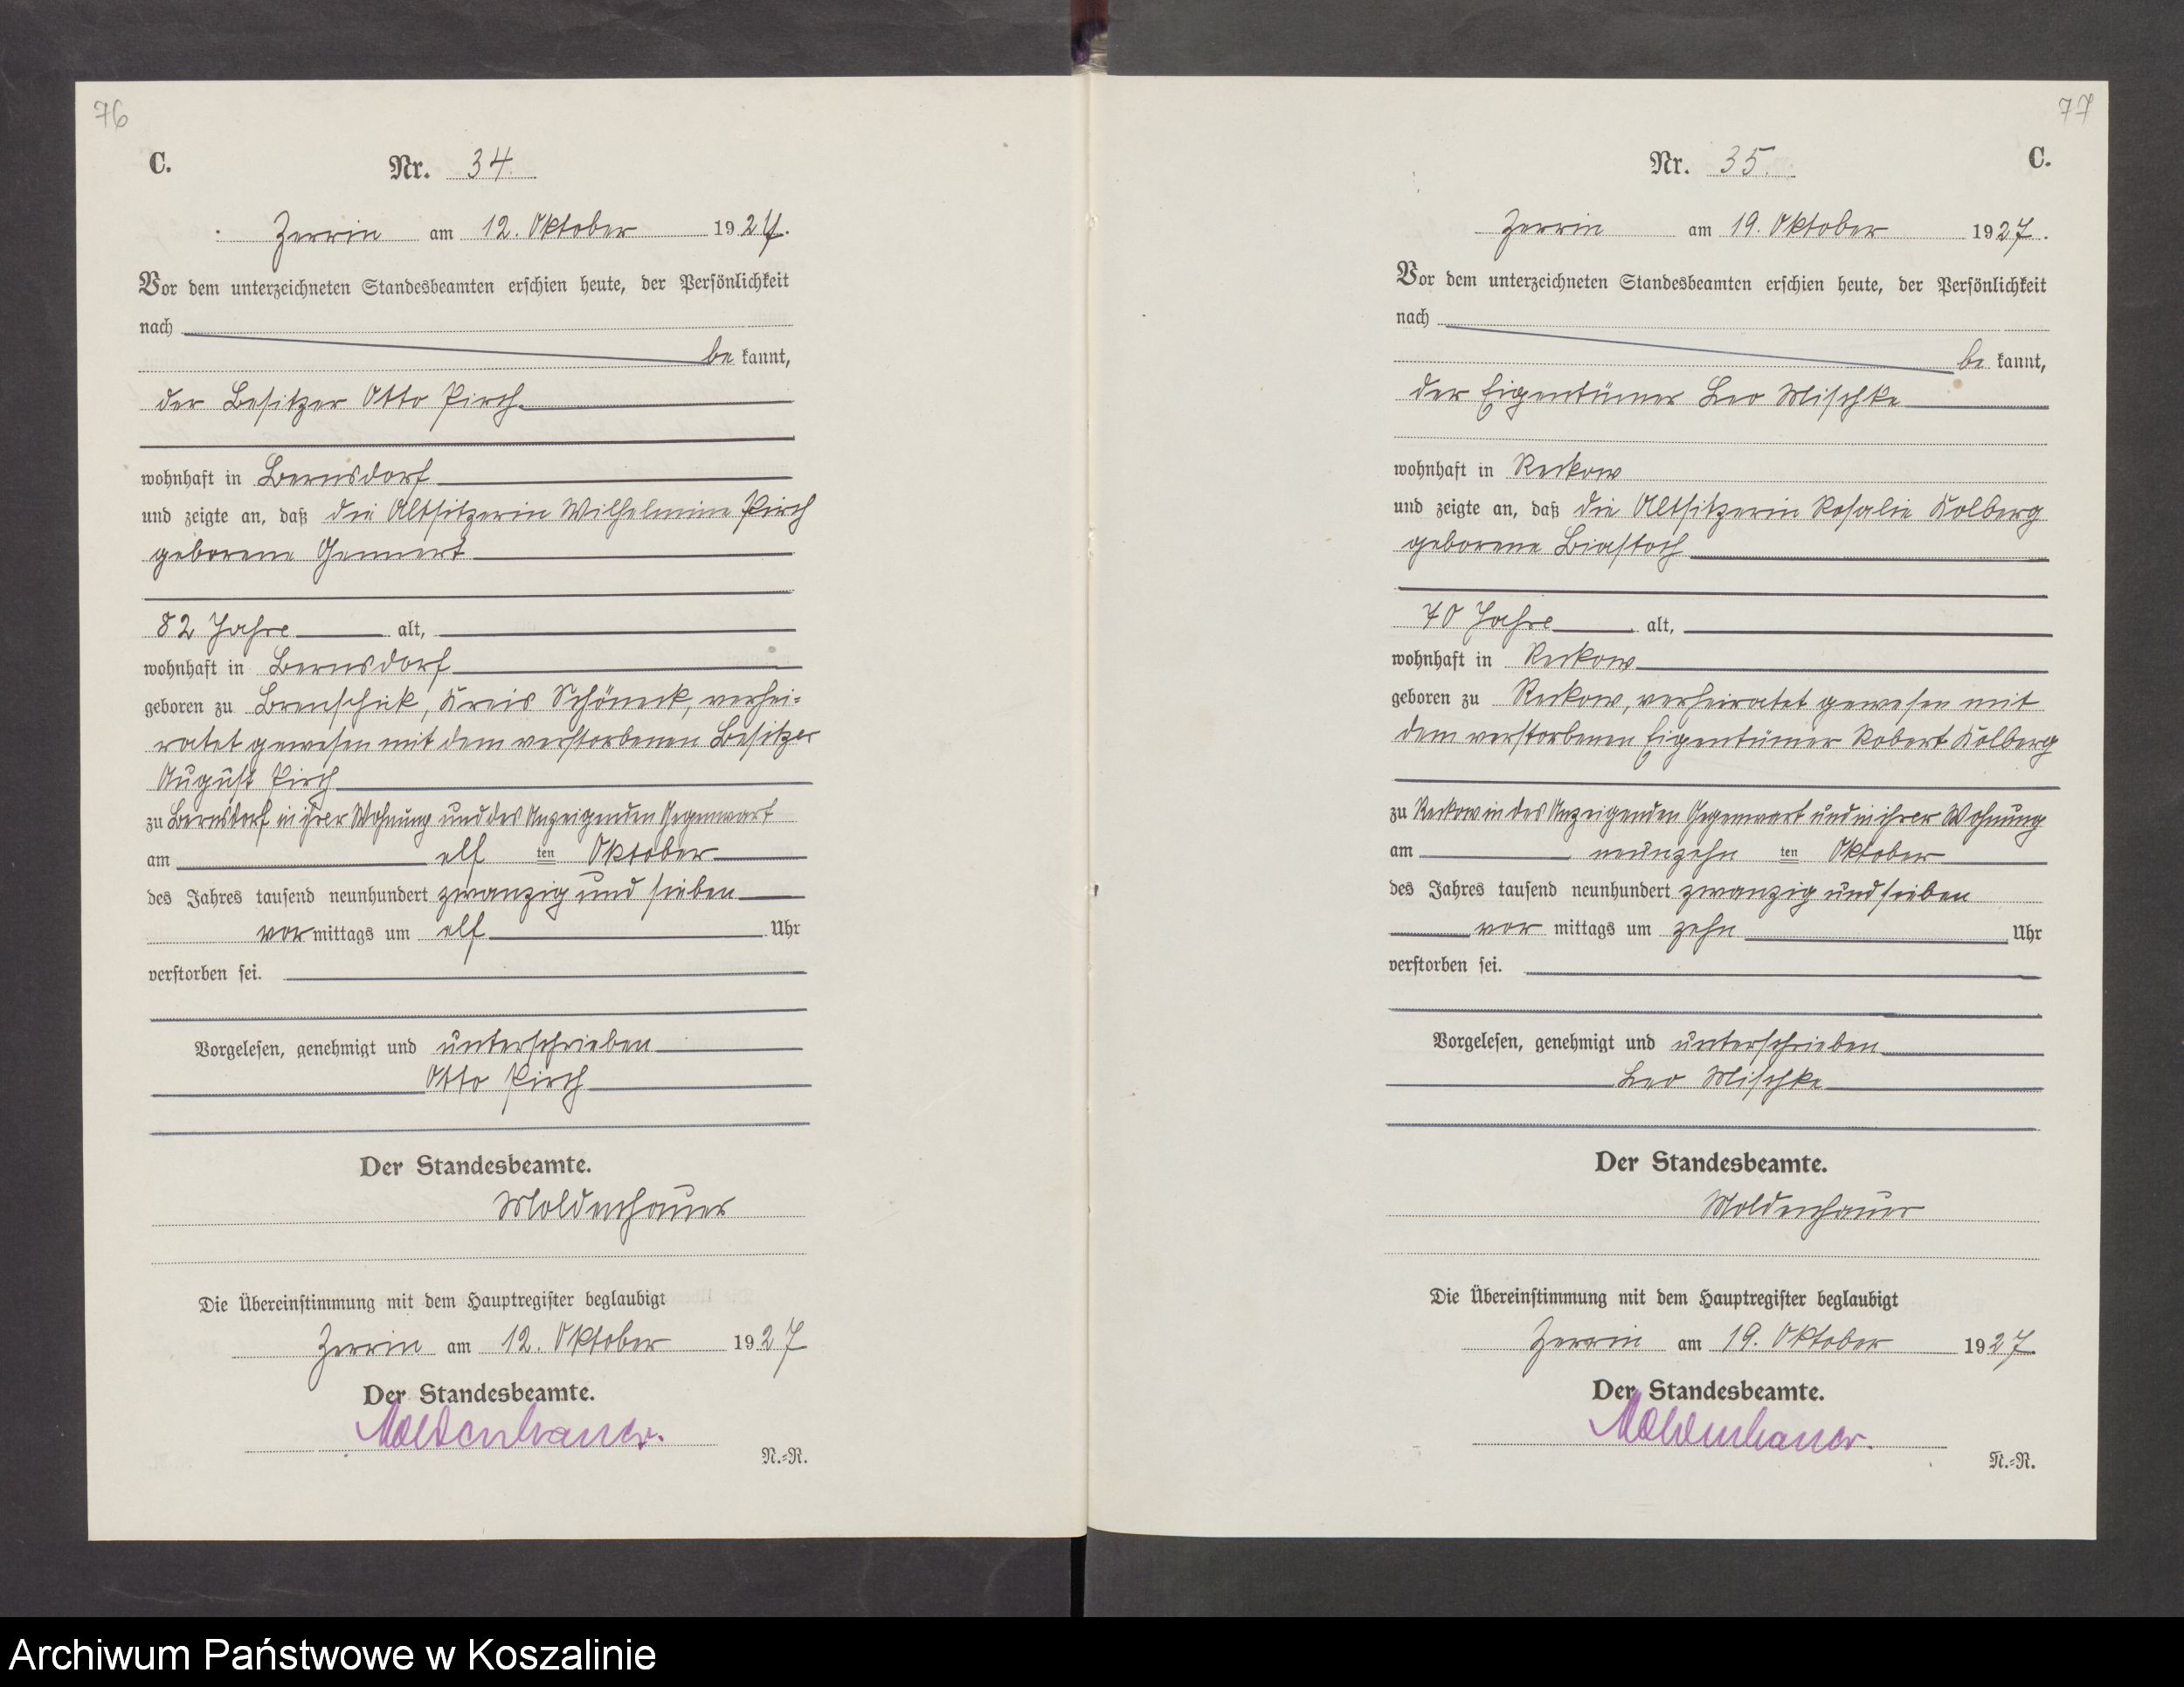 76
C.
Nr. 34.
Zerrin am 12. Oktober 1927.
Vor dem unterzeichneten Standesbeamten erschien heute, der Persönlichkeit
nach
be kannt,
der Besitzer Otto Pirch
wohnhaft in Bernsdorf
und zeigte an, daß die Altsitzerin Wilhelmine Pirch
geborene Gennert
82 Jahre alt,
wohnhaft in Bernsdorf
geboren zu Kreis Schöneck, verhei-
ratet gewesen mit dem verstorbenen Besitzer
August Pirch
zu Bernsdorf in ihrer Wohnung und des Anzeigenden Gegenwart
am elf ten Oktober
des Jahres tausend neunhundert zwanzig und sieben
vor mittags um elf Uhr
verstorben sei.
Vorgelesen, genehmigt und unterschrieben
Otto Pirch
Der Standesbeamte.
Moldenhauer
Die Übereinstimmung mit dem Hauptregister beglaubigt
Zerrin am 12. Oktober 1927
Der Standesbeamte.
Moldenhauer.
N.=R.
77
Nr. 35.
C.
Zerrin am 19. Oktober 1927.
Vor dem unterzeichneten Standesbeamten erschien heute, der Persönlichkeit
nach
be kannt,
der Eigentümer Leo Mischke
wohnhaft in Reckow
und zeigte an, daß die Altsitzerin Rosalie Kolberg
geborene Biastoch
70 Jahre alt,
wohnhaft in Reckow
geboren zu Reckow, verheiratet gewesen mit
dem verstorbenen Eigentümer Robert Kolberg
zu Reckow in des Anzeigenden Gegenwart und in ihrer Wohnung
am neunzehn ten Oktober
des Jahres tausend neunhundert zwanzig und sieben
vor mittags um zehn Uhr
verstorben sei.
Vorgelesen, genehmigt und unterschrieben
Leo Mischke
Der Standesbeamte.
Moldenhauer
Die Übereinstimmung mit dem Hauptregister beglaubigt
Zerrin am 19. Oktober 1927.
Der Standesbeamte.
Moldenhauer.
N.=R.
Archiwum Państwowe w Koszalinie